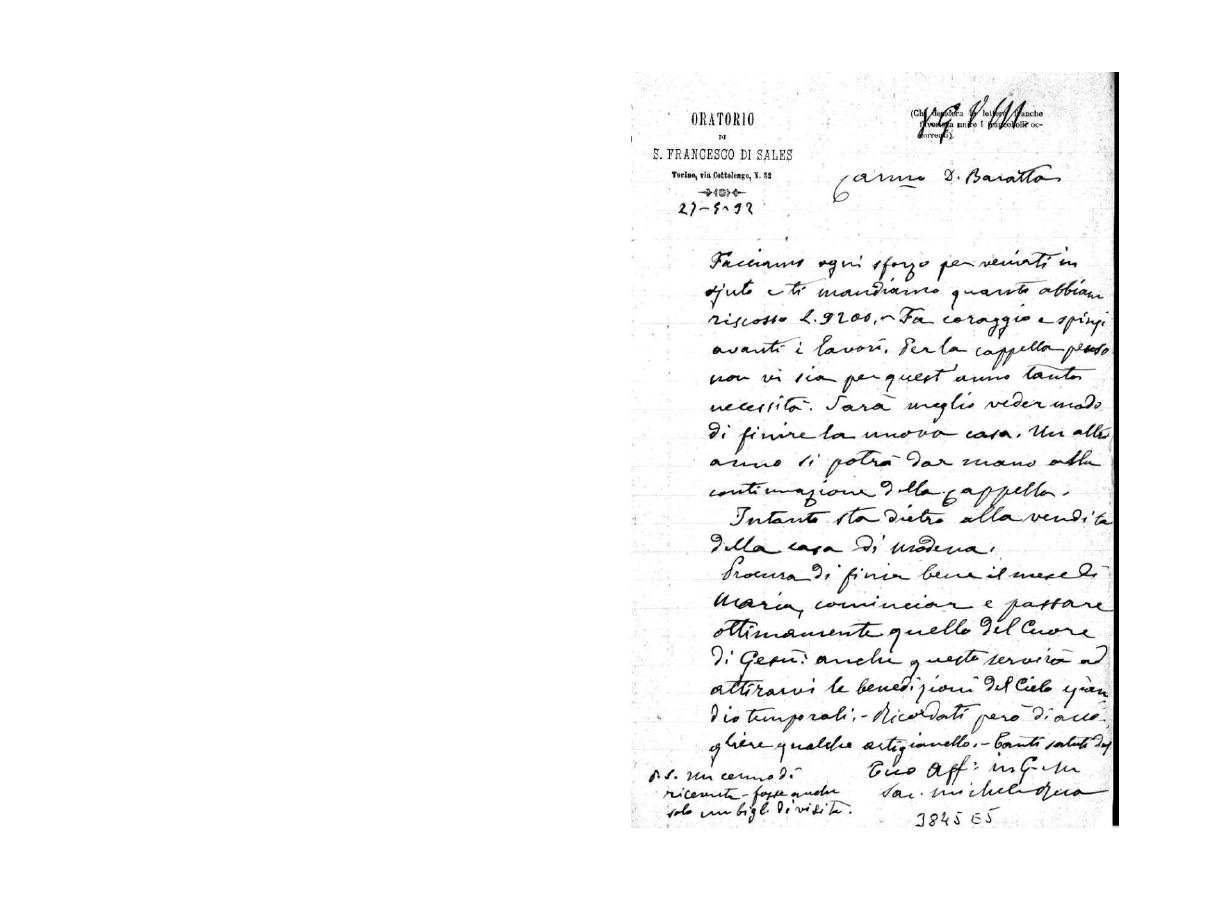 ORATORIO
DI
S. FRANCESCO DI SALES
Torino, via Cottolengo, N. 32
27-5-92
(Chi desidera lettere anche
unire i francobolli oc-
correnti).
V. G. V. M
Carmo D. Baratta
Facciamo ogni sforzo per venirti in
ajuto e ti mandiamo quanto abbiam
riscosso L. 9200.- Fa coraggio e spingi
avanti i lavori. Per la cappella penso
non vi sia per quest'anno tanta
necessità. Sarà meglio veder modo
di finire la nuova casa. Un altr'
anno si potrà dar mano alla
continuazione della cappella.
Intanto sta dietro alla vendita
della casa di Modena.
Procura di finir bene il mese di
Maria, cominciar e passare
ottimamente quello del Cuore
di Gesù: anche questo servirà ad
attirarvi le benedizioni del Cielo ezian
dio temporali.- Ricordati però di acco-
gliere qualche artigianello.- Tanti saluti dal
Tuo Aff: in G. e M
Sac. Michele Rua
P.S. Un cenno di
ricevuta - fosse anche
solo un bigl. di visita.
3845 E5